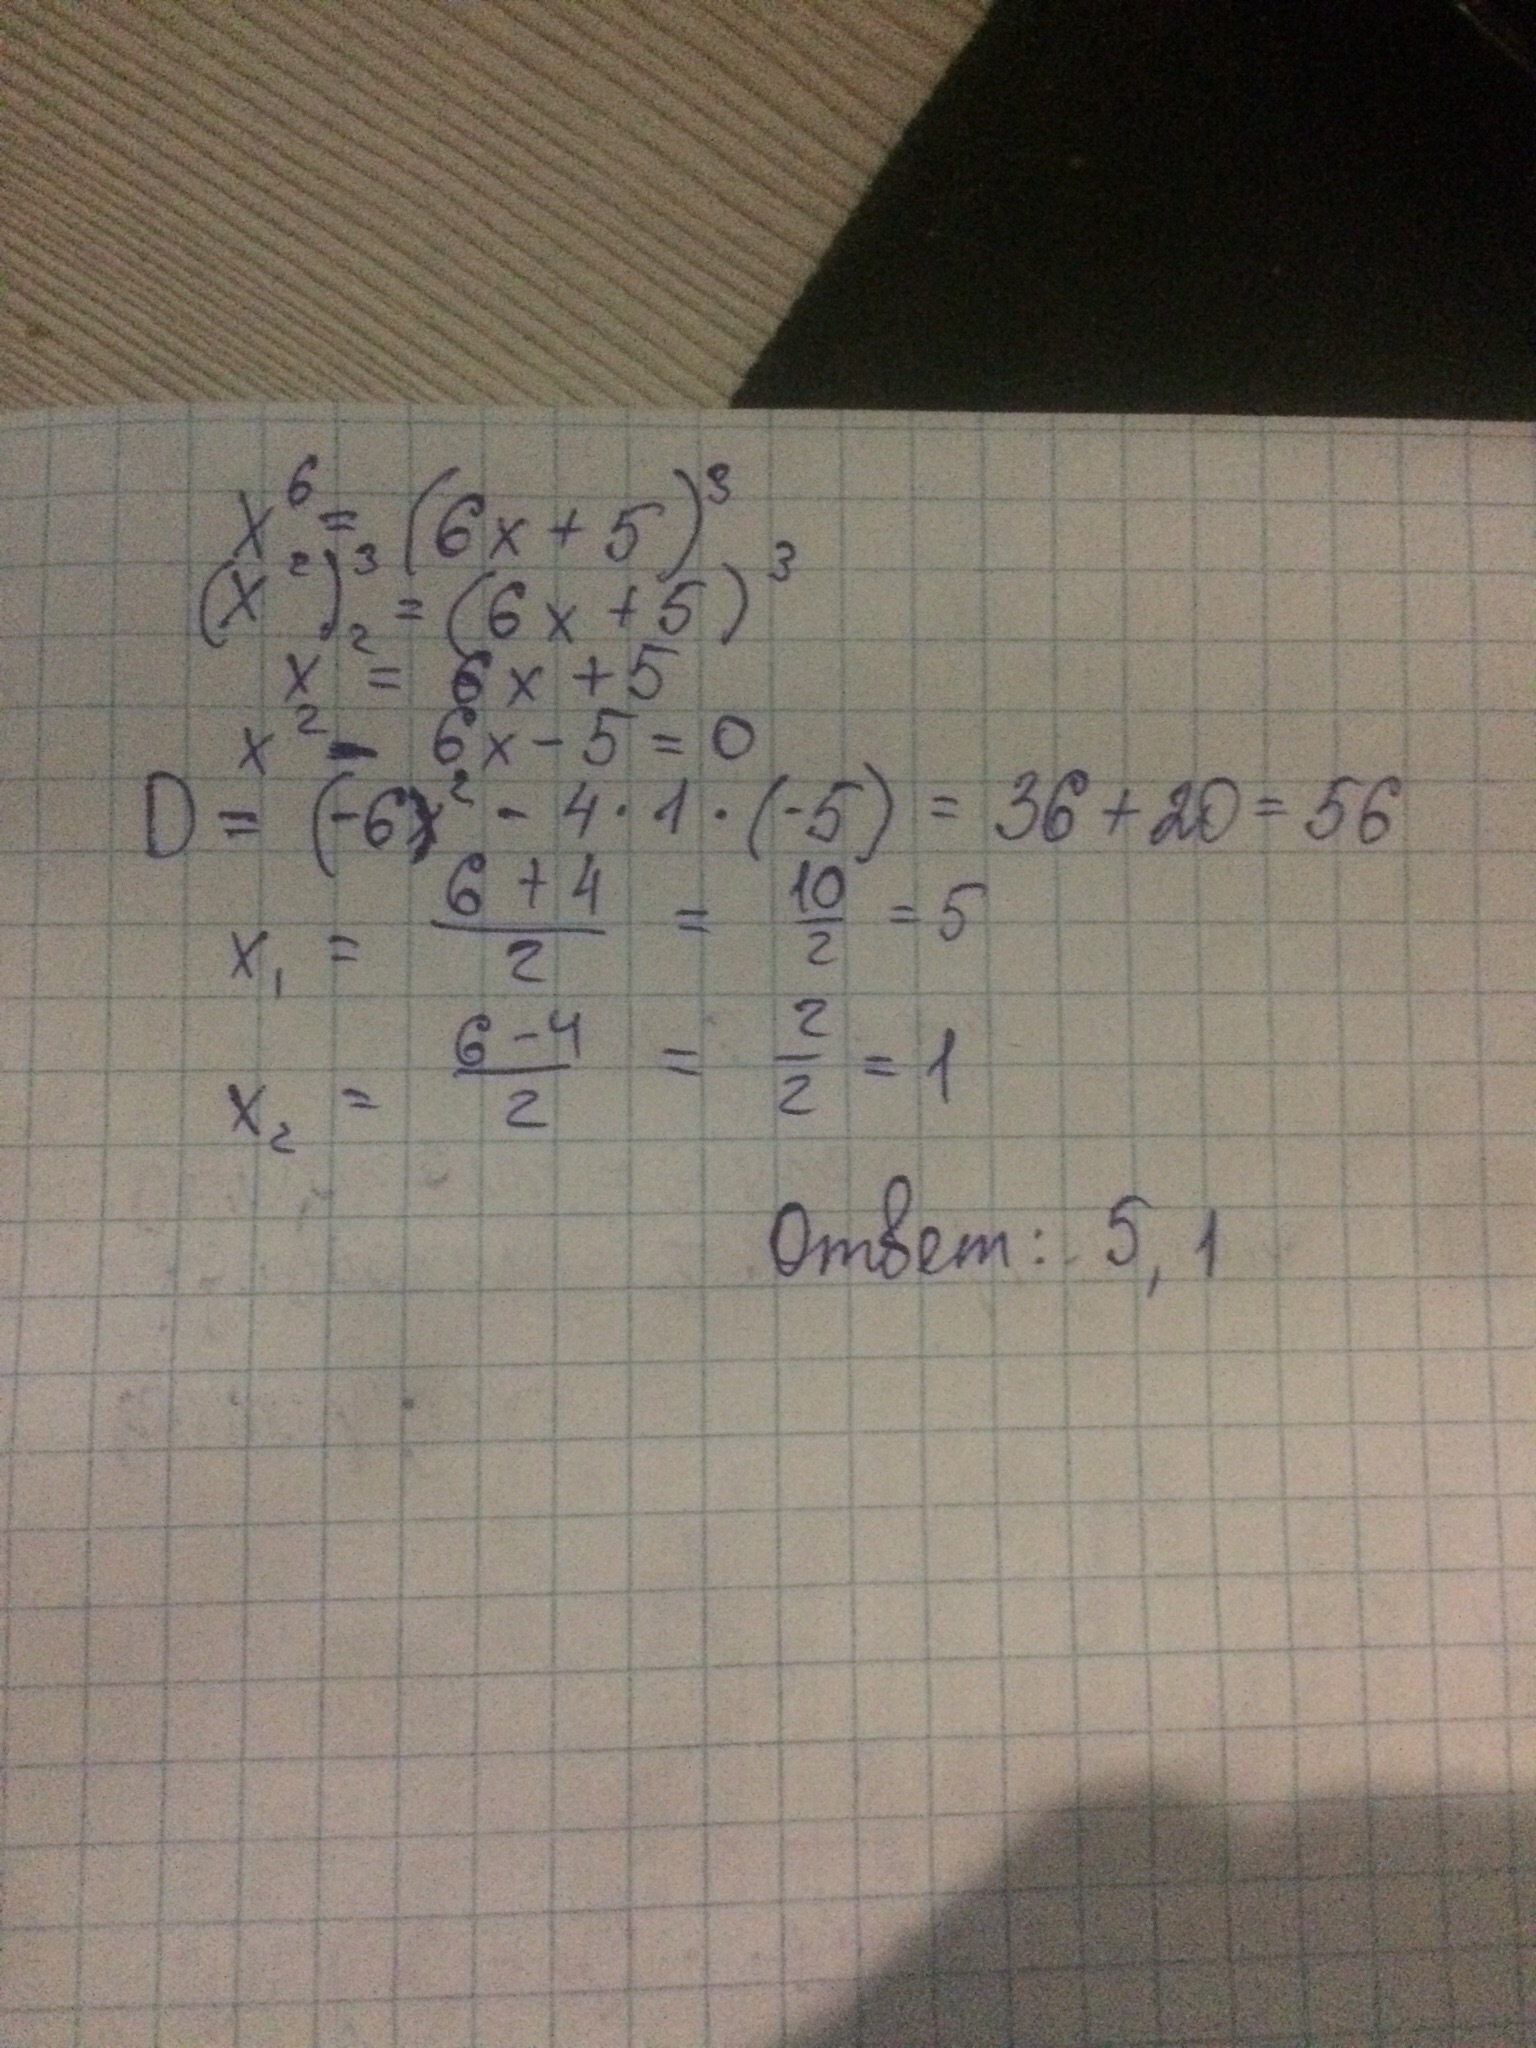 x⁶ = (6x + 5)³
(x²)³ = (6x + 5)³
x² = 6x + 5
x² - 6x - 5 = 0
D = (-6)² - 4 · 1 · (-5) = 36 + 20 = 56
x₁ = (6 + 4)/2 = 10/2 = 5
x₂ = (6 - 4)/2 = 2/2 = 1
Ответ: 5, 1